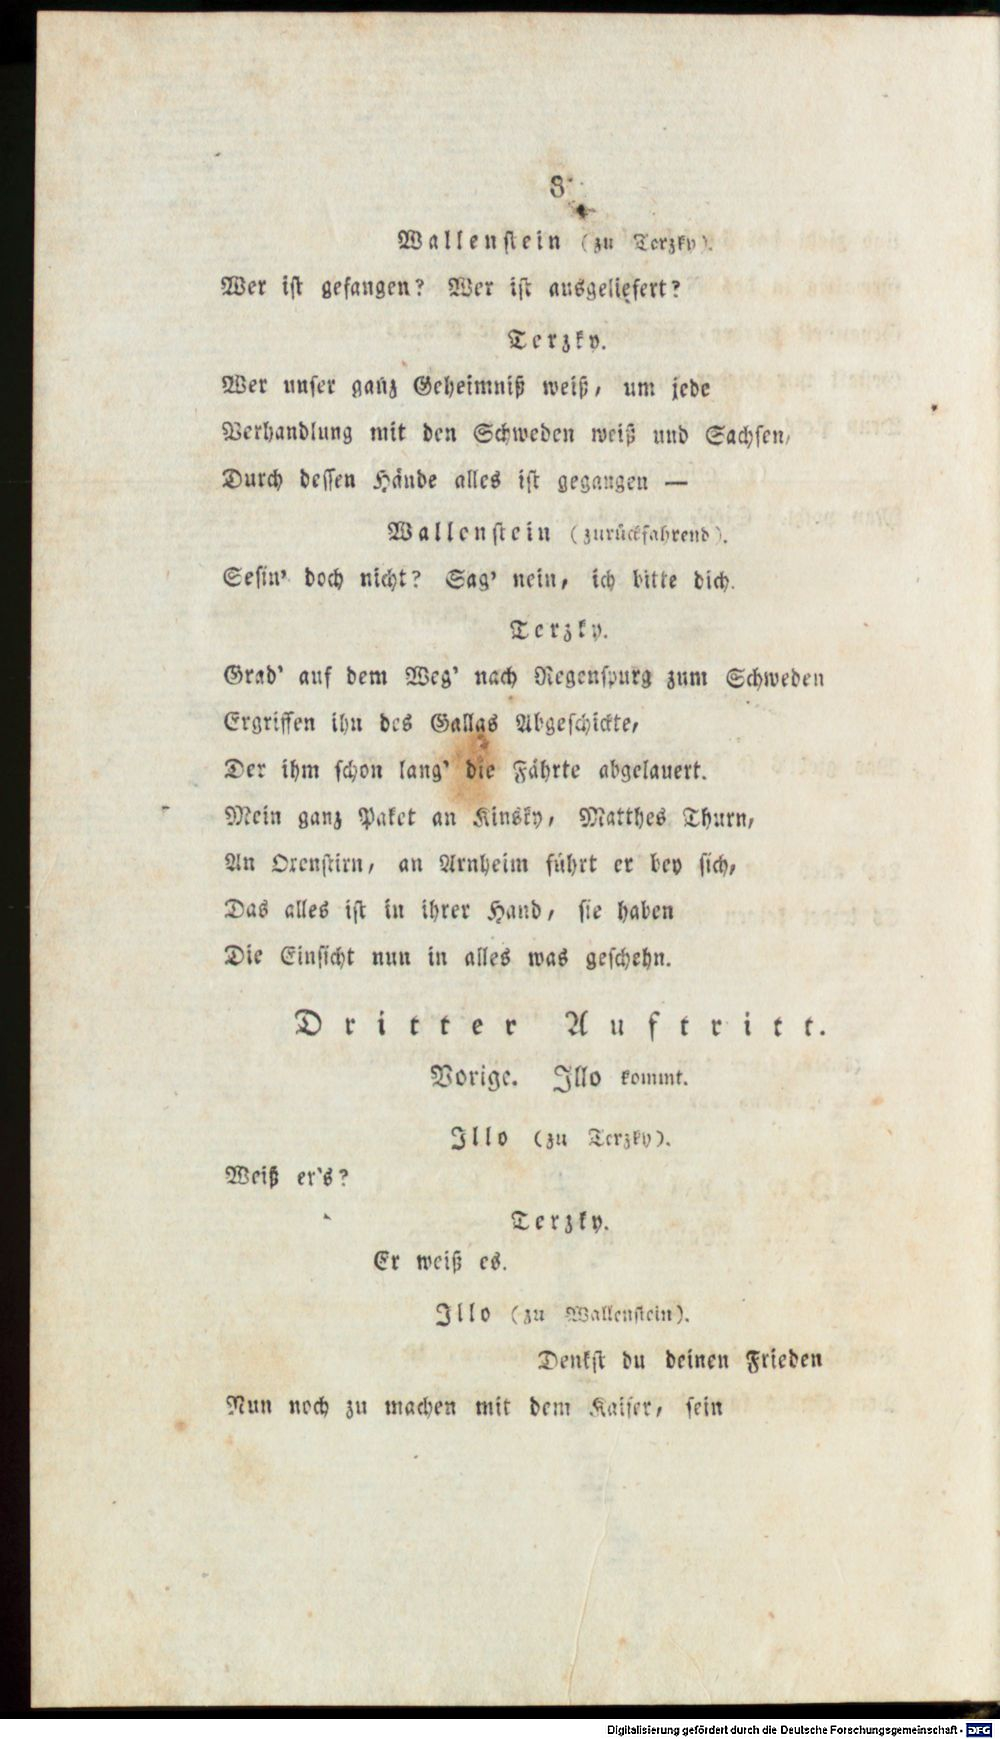 8
Wallenstein (zu Terzky).
Wer ist gefangen? Wer ist ausgeliefert?
Terzky.
Wer unser ganz Geheimniß weiß, um jede
Verhandlung mit den Schweden weiß und Sachsen,
Durch dessen Hände alles ist gegangen —
Wallenstein (zurückfahrend).
Sesin' doch nicht? Sag' nein, ich bitte dich.
Terzky.
Grad' auf dem Weg' nach Regenspurg zum Schweden
Ergriffen ihn des Gallas Abgeschickte,
Der ihm schon lang' die Fährte abgelauert.
Mein ganz Paket an Kinsky, Matthes Thurn,
An Oxenstirn, an Arnheim führt er bey sich,
Das alles ist in ihrer Hand, sie haben
Die Einsicht nun in alles was geschehn.
Dritter Auftritt.
Vorige. Illo kommt.
Illo (zu Terzky).
Weiß er's?
Terzky.
Er weiß es.
Illo (zu Wallenstein).
Denkst du deinen Frieden
Nun noch zu machen mit dem Kaiser, sein
Digitalisierung gefördert durch die Deutsche Forschungsgemeinschaft - DFG